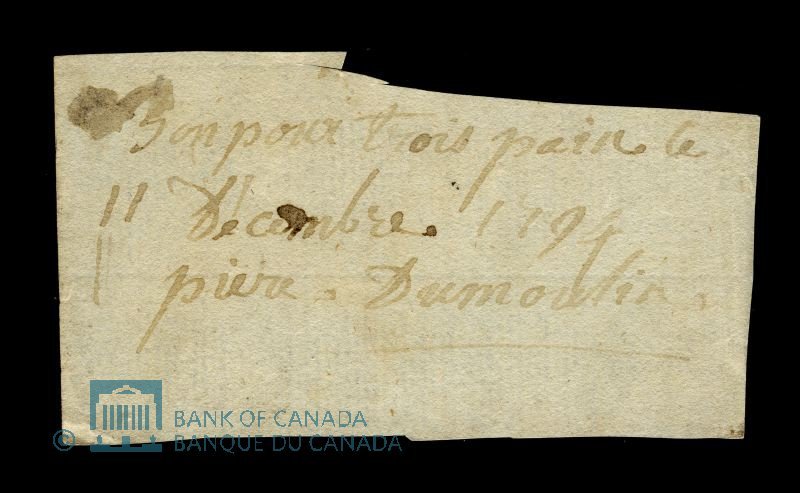 Bon pour trois pain le
11 Décembre. 1794
piere. Dumoulin.
BANK OF CANADA
© BANQUE DU CANADA